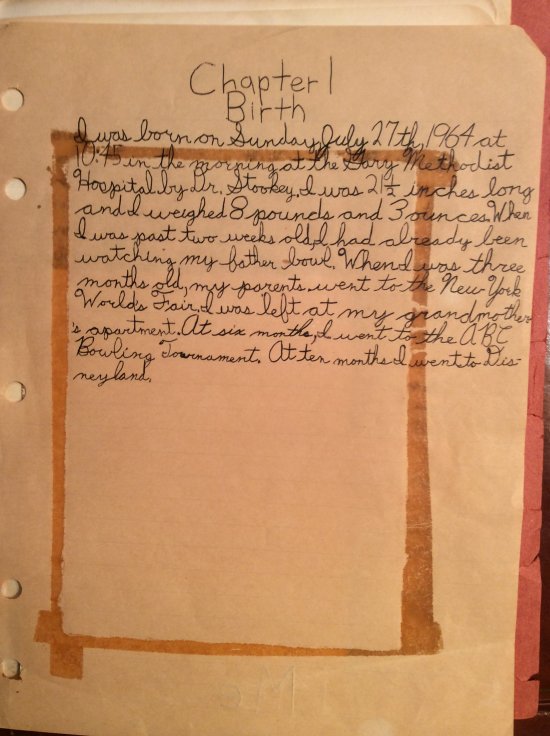 Chapter 1
Birth
I was born on Sunday, July 27th, 1964 at
10:45 in the morning at the Gary Methodist
Hospital by Dr. Stookey. I was 21½ inches long
and I weighed 8 pounds and 3 ounces. When
I was past two weeks old, I had already been
watching my father bowl. When I was three
months old, my parents went to the New York
World's Fair. I was left at my grandmother
's apartment. At six months, I went to the ABC
Bowling Tournament. At ten months I went to Dis-
neyland.